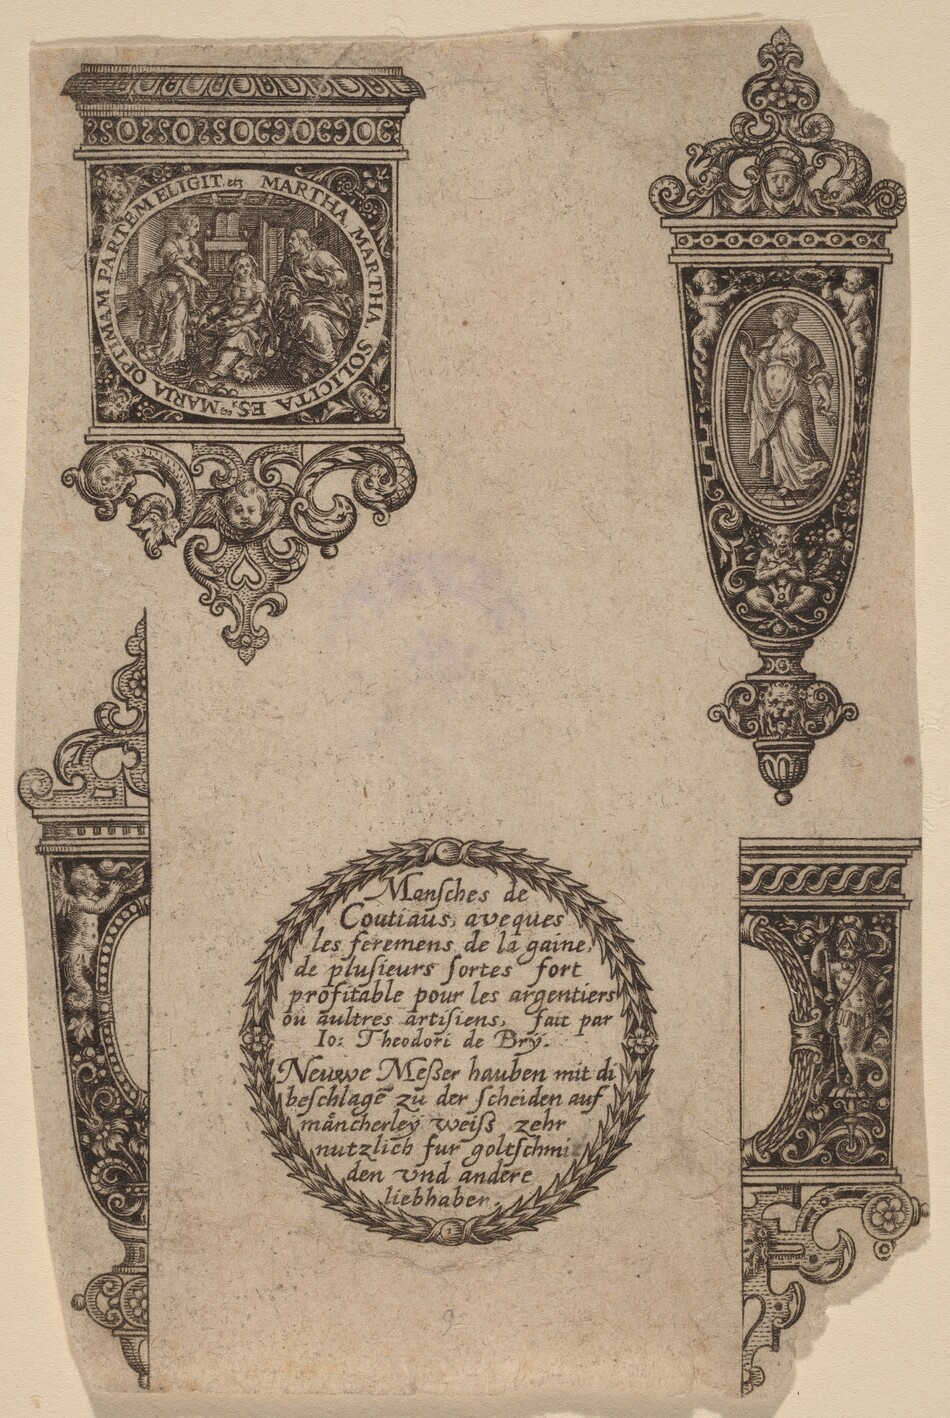 MARTHA MARTHA, SOLICITA ES, MARIA OPTIMAM PARTEM ELIGIT. etz
Manſches de
Coutiaus, aveques
les feremens de la gaine,
de pluſieurs ſortes fort
profitable pour les argentiers
ou aultres artiſiens, fait par
Io: Theodori de Bry.
Neuwe Meßer hauben mit di
beſchlagē zu der ſcheiden auf
måncherley weiſs zehr
nutzlich fur goltſchmi
den vnd andere
liebhaber.
9